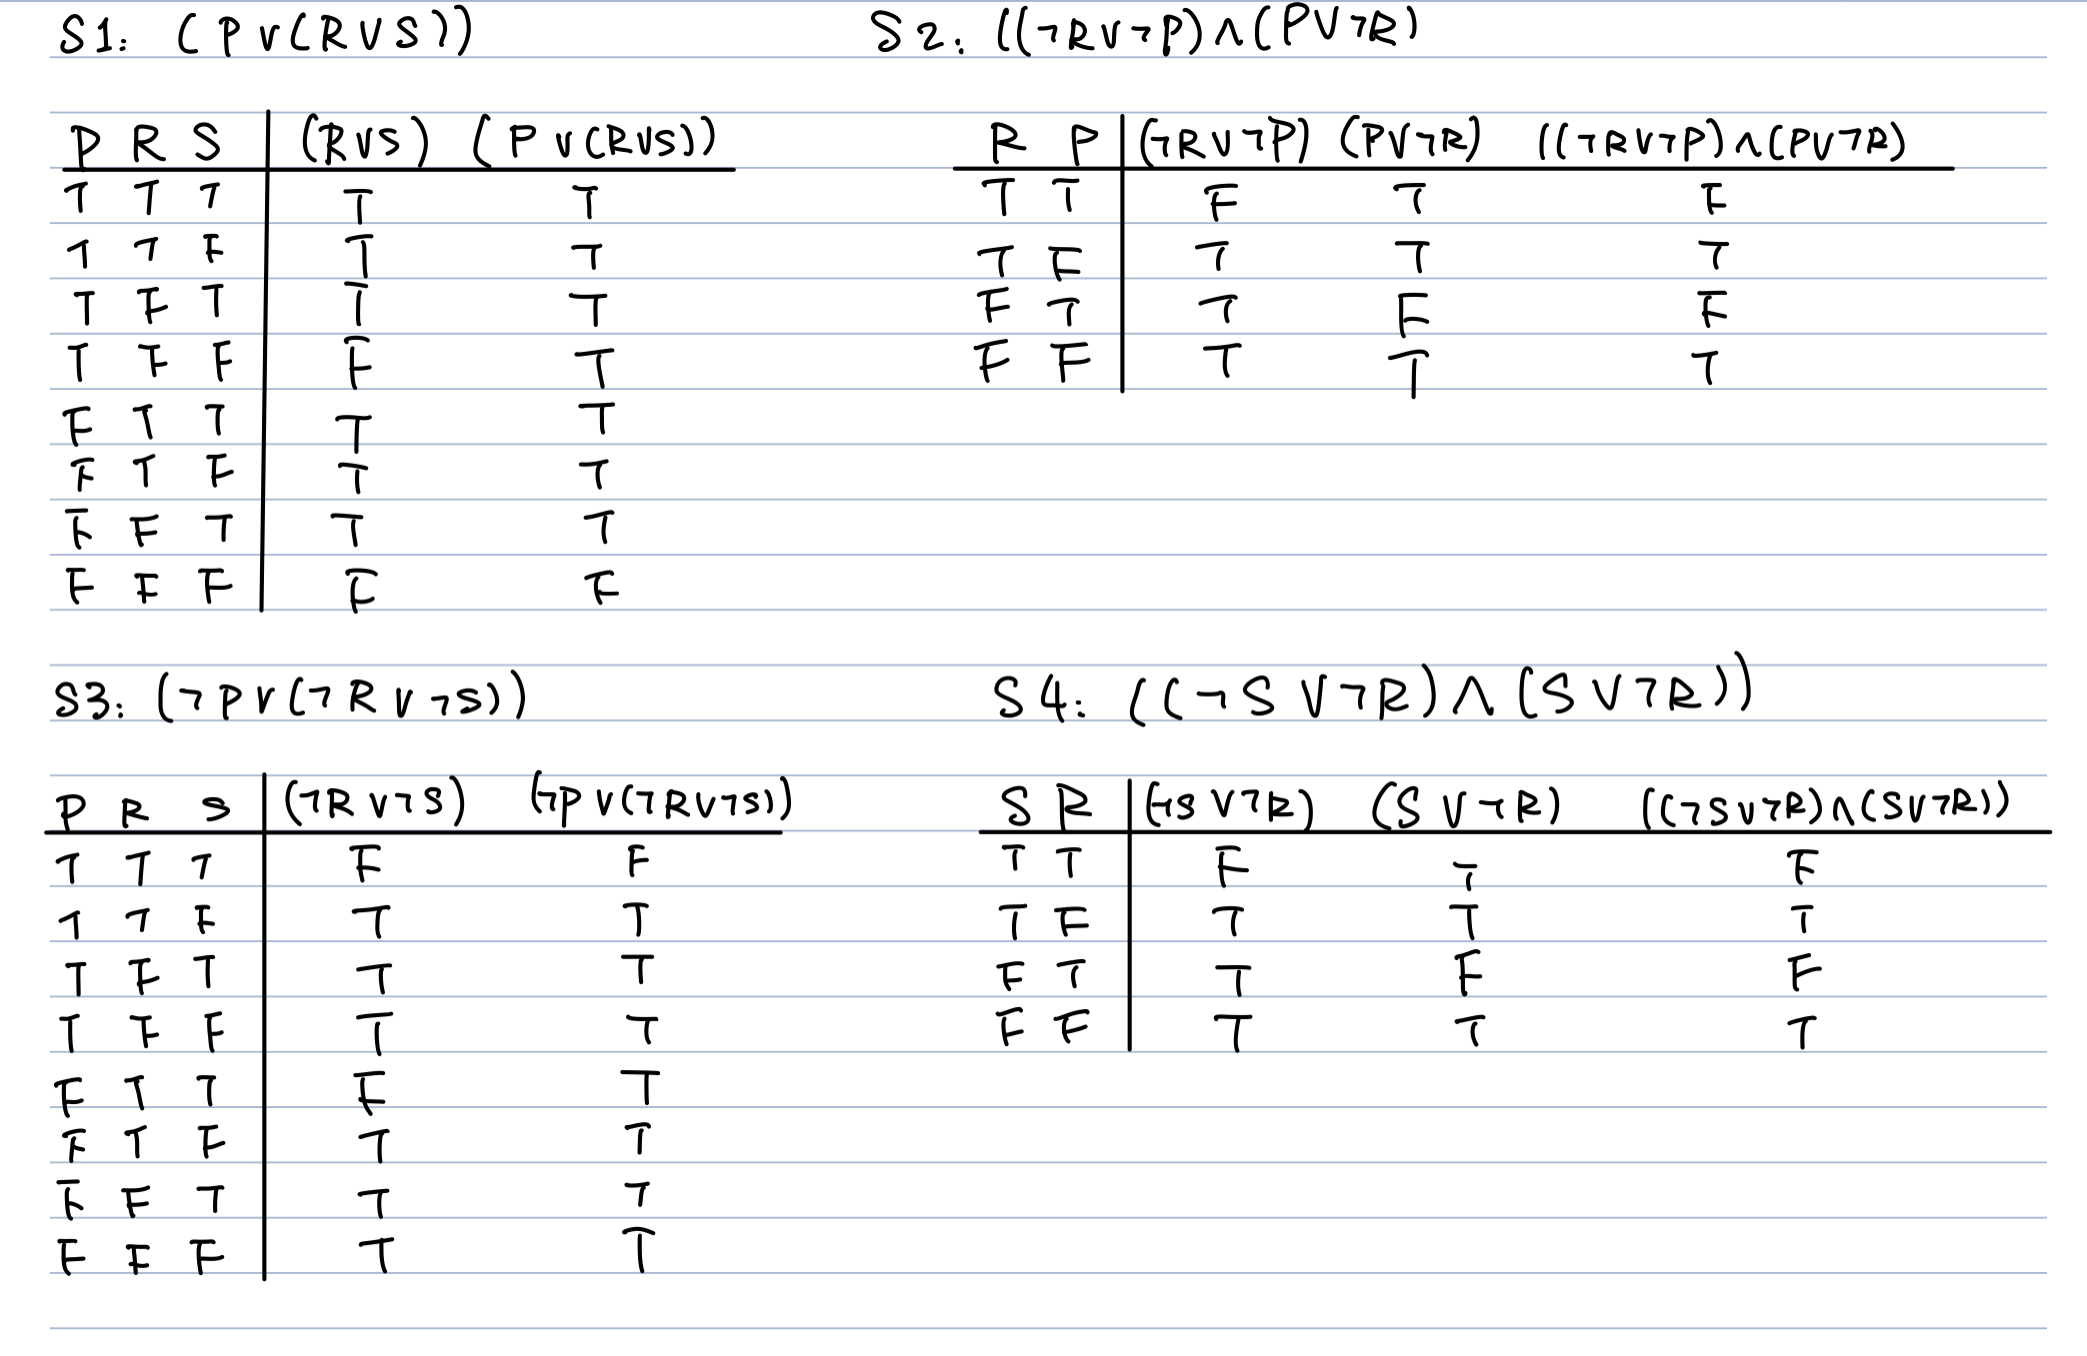 S1: (P∨(R∨S))
P R S (R∨S) (P∨(R∨S))
T T T T T
T T F T T
T F T T T
T F F F T
F T T T T
F T F T T
F F T T T
F F F F F
S2: ((¬R∨¬P)∧(P∨¬R)
R P (¬R∨¬P) (P∨¬R) ((¬R∨¬P)∧(P∨¬R)
T T F T F
T F T T T
F T T F F
F F T T T
S3: (¬P∨(¬R∨¬S))
P R S (¬R∨¬S) (¬P∨(¬R∨¬S))
T T T F F
T T F T T
T F T T T
T F F T T
F T T F T
F T F T T
F F T T T
F F F T T
S4: ((¬S∨¬R)∧(S∨¬R))
S R (¬S∨¬R) (S∨¬R) ((¬S∨¬R)∧(S∨¬R))
T T F T F
T F T T T
F T T F F
F F T T T